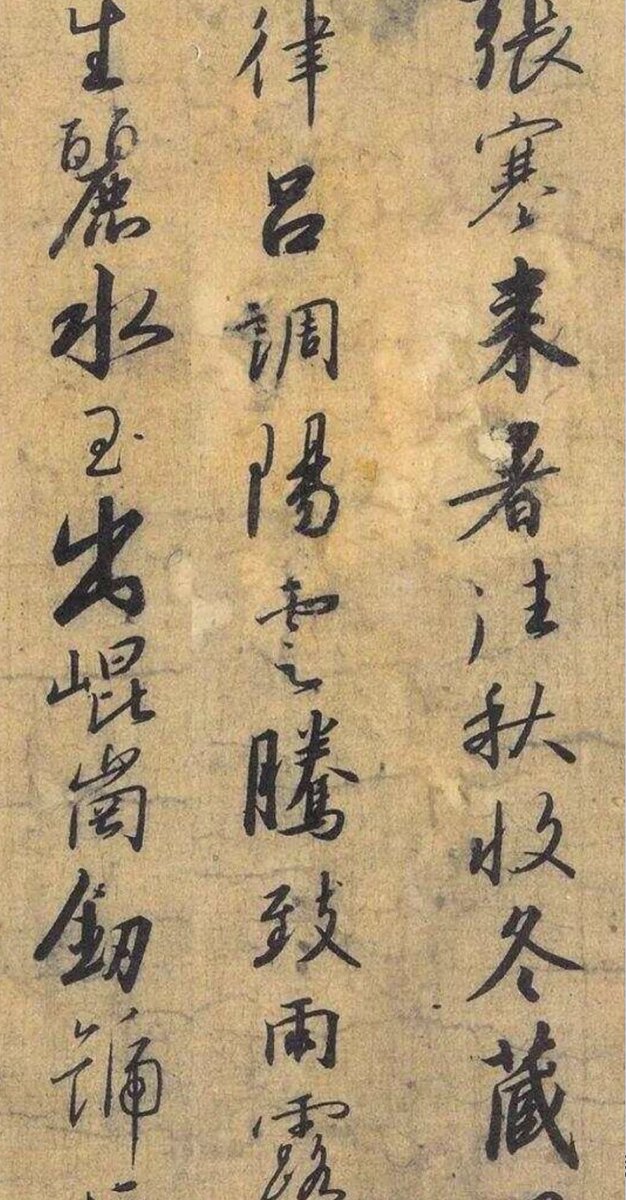 張寒来暑往秋收冬藏
律呂調陽雲騰致雨露
生麗水玉出崐崗釰號